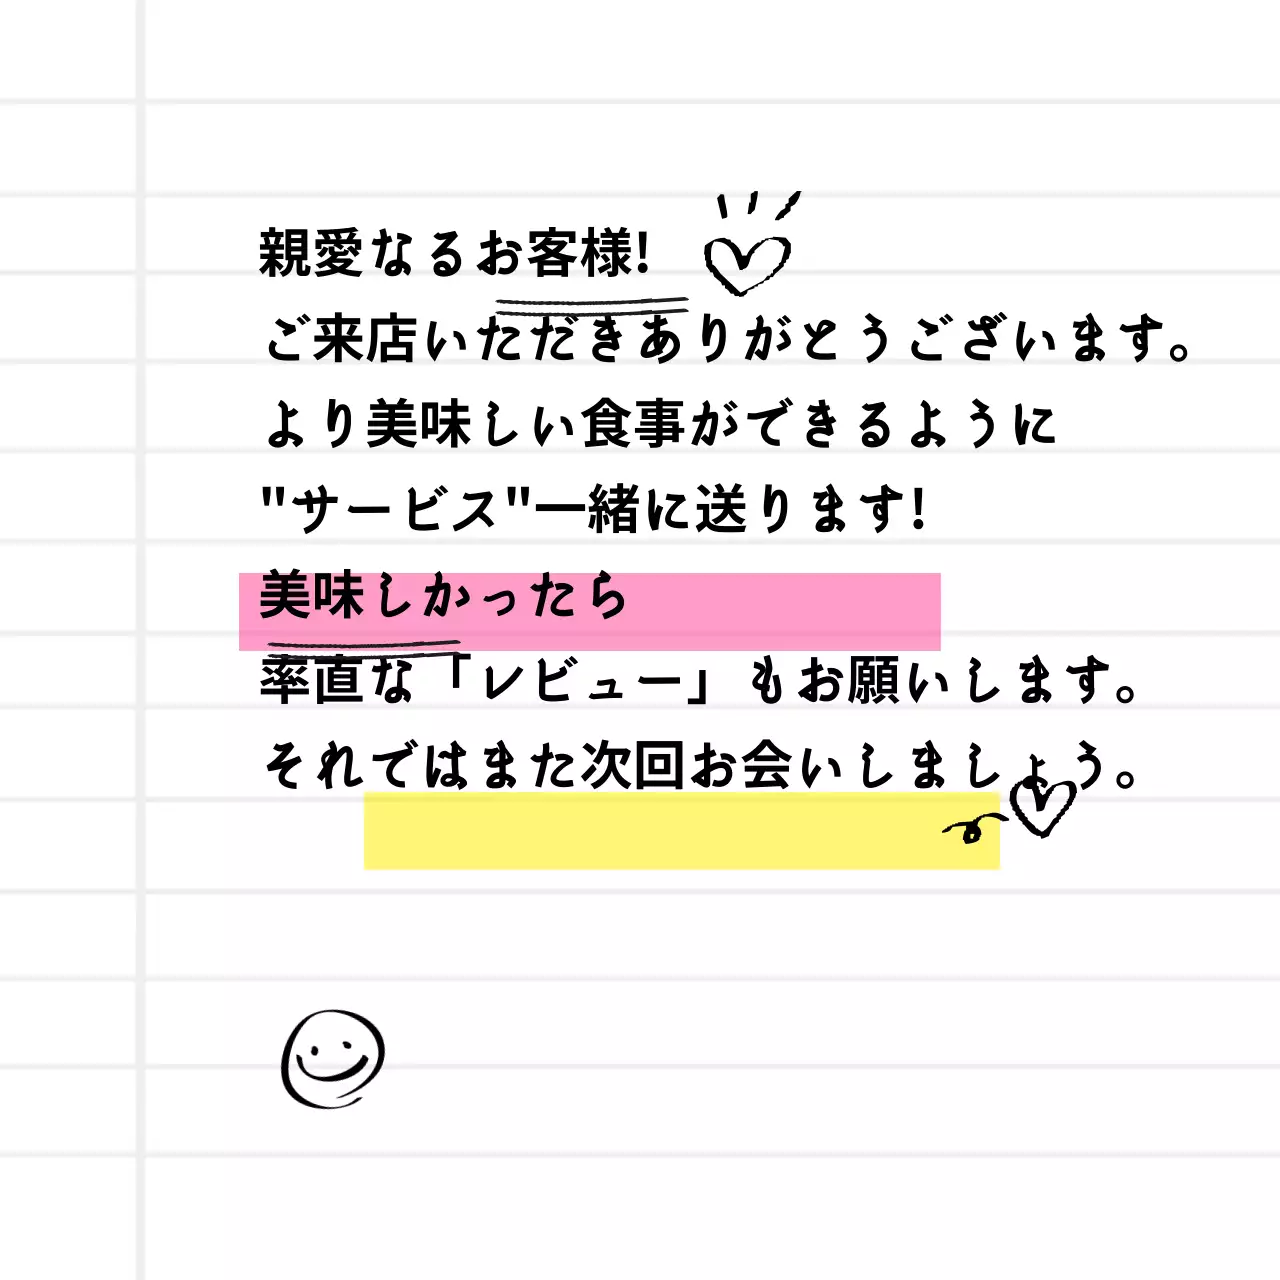 親愛なるお客様!
ご来店いただきありがとうございます。
より美味しい食事ができるように
"サービス"一緒に送ります!
美味しかったら
率直な「レビュー」もお願いします。
それではまた次回お会いしましょう。